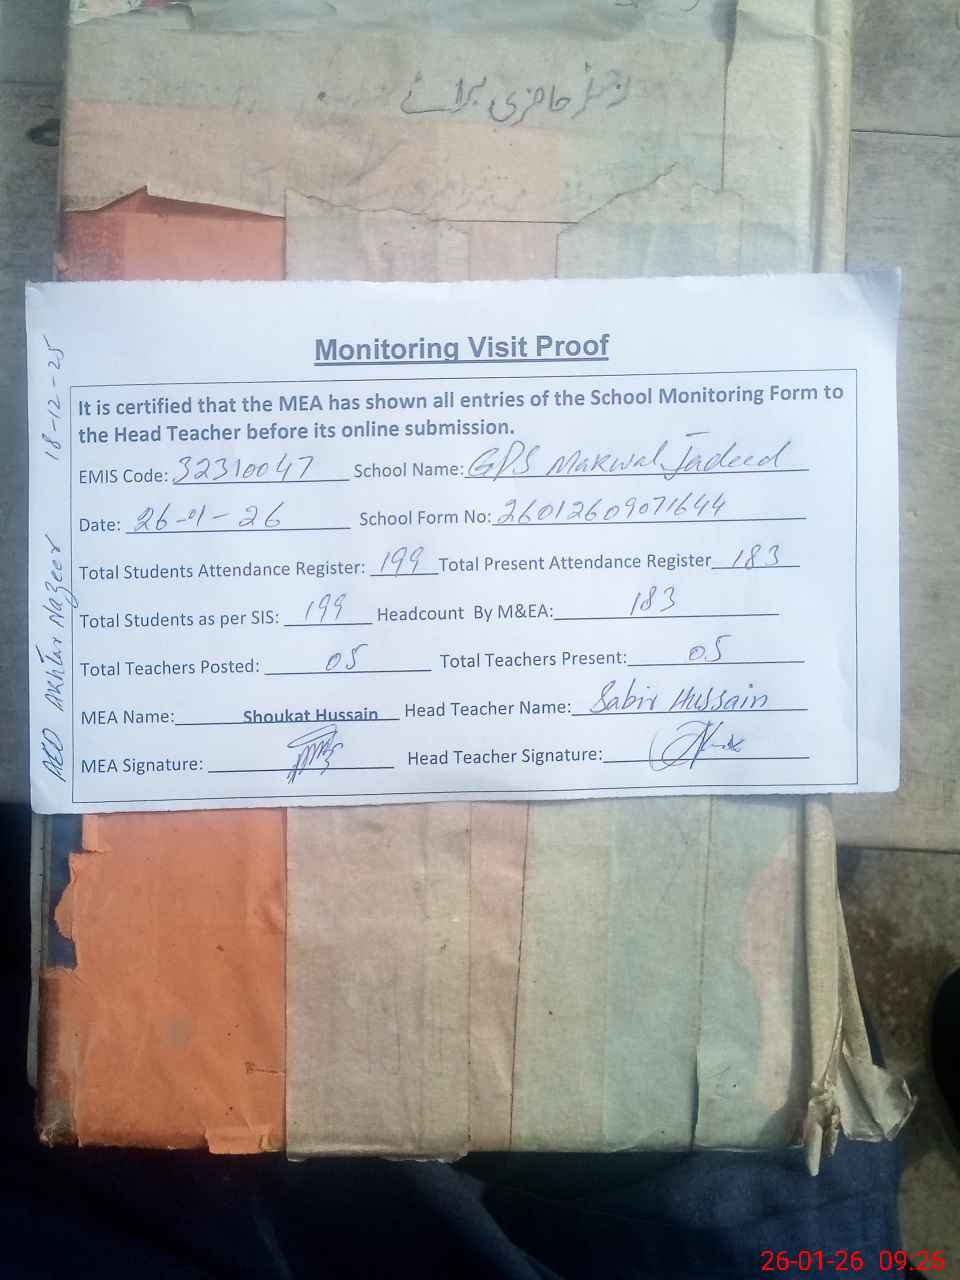 رجسٹر حاضری برائے
Monitoring Visit Proof
It is certified that the MEA has shown all entries of the School Monitoring Form to
the Head Teacher before its online submission.
EMIS Code: 32310047 School Name: GPS Makwal Jadeed
Date: 26-01-26 School Form No: 26012609071644
Total Students Attendance Register: 199 Total Present Attendance Register 183
Total Students as per SIS: 199 Headcount By M&EA: 183
Total Teachers Posted: 05 Total Teachers Present: 05
MEA Name: Shoukat Hussain Head Teacher Name: Sabir Hussain
MEA Signature: Head Teacher Signature:
AEO Akhtar Nazeer 18-12-25
26-01-26 09:26